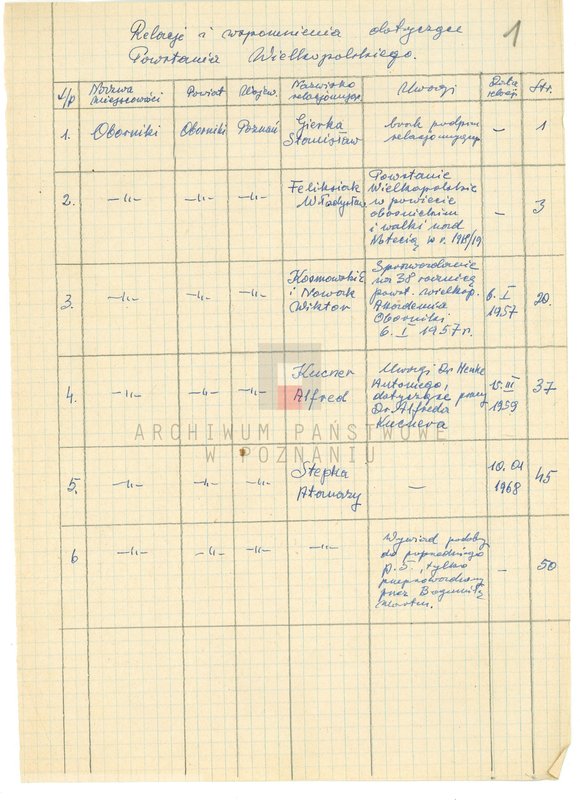 Relacje i wspomnienia dotyczące 1
Powstania Wielkopolskiego.
L/p Nazwa miejscowości Powiat Wojew. Nazwisko relacjonując. Uwagi Data relacji Str.
1. Oborniki Oborniki Poznań Gierka Stanisław brak podpisu relacjonującego — 1
2. —„— —„— —„— Feliksiak Władysław Powstanie Wielkopolskie w powiecie obornickim i walki nad Notecią w r. 1918/19 — 3
3. —„— —„— —„— Kosmowski i Nowak Wiktor Sprawozdanie na 38 rocznicę powst. wielkop. Akademia Oborniki 6. I 1957 r. 6. I 1957 20
4. —„— —„— —„— Kucner Alfred Uwagi Dr Henke Antoniego, dotyczące pracy Dr. Alfreda Kucnera 15. III 1959 37
ARCHIWUM PAŃSTWOWE
W POZNANIU
5. —„— —„— —„— Stepka Atanazy — 10.01 1968 45
6 —„— —„— —„— —„— Wywiad podobny do poprzedniego p. 5., tylko przeprowadzony przez Bogumiłę — 50